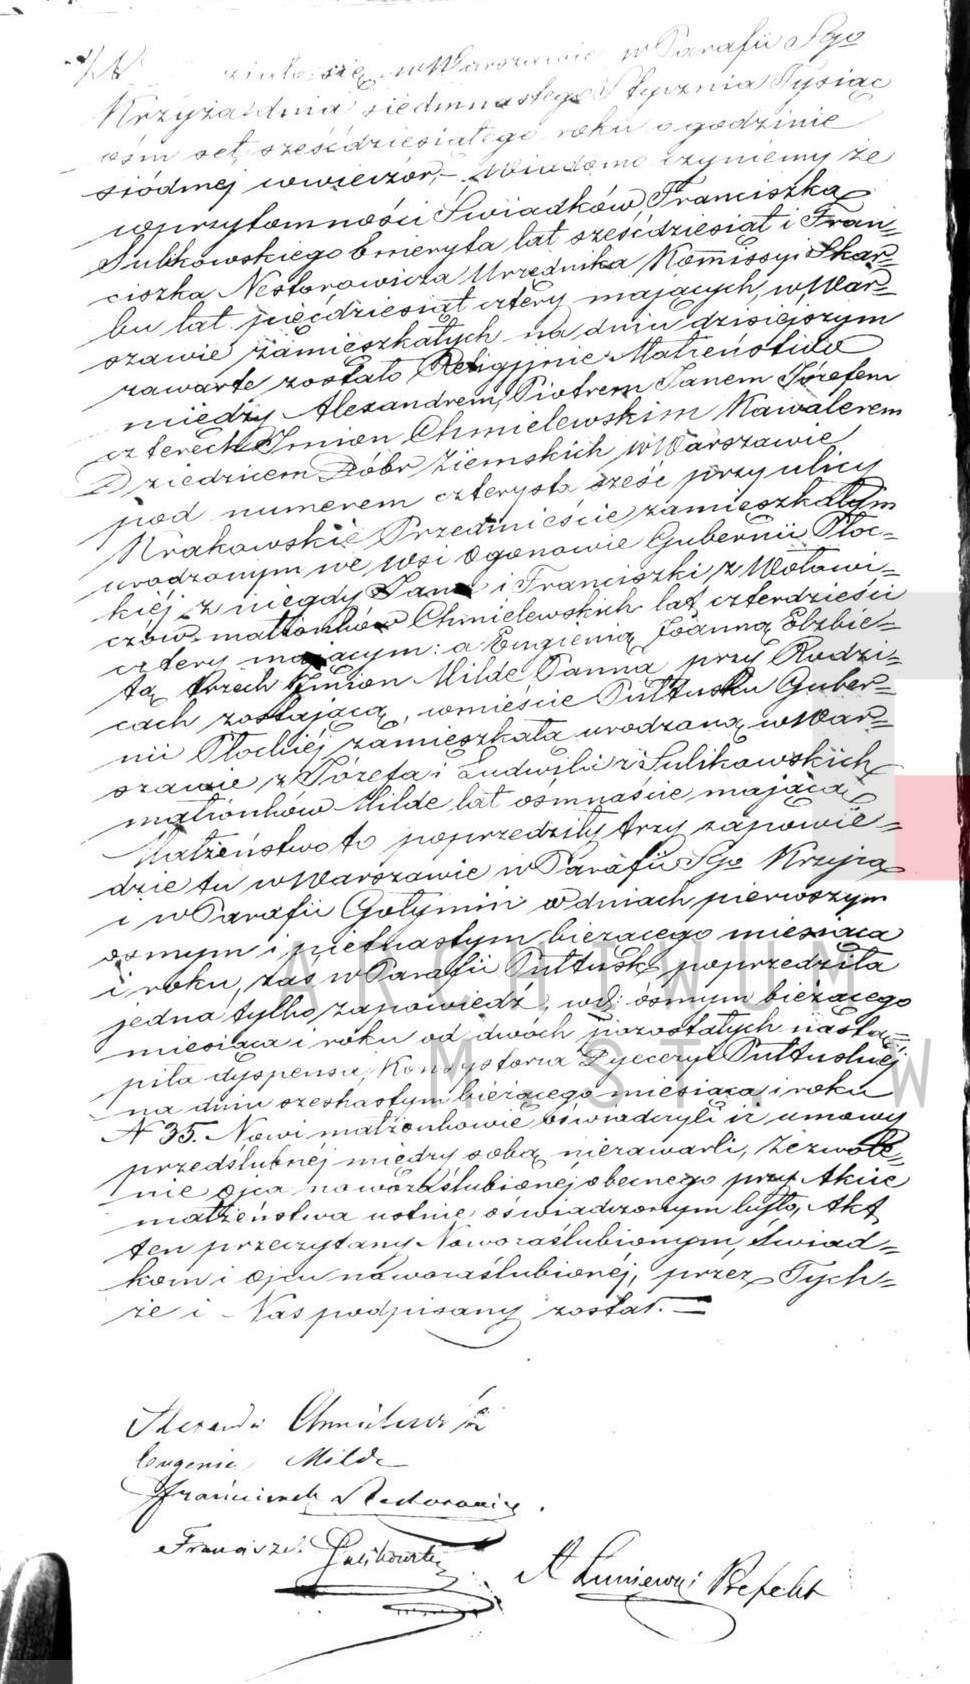 działo się w Warszawie w Parafii Sgo
Krzyża dnia siedmnastego Stycznia Tysiąc
ośm set sześćdziesiątego roku o godzinie
siódmej wwieczór, – Wiadomo czyniemy że
wprzytomności Świadków, Franciszka
Sulikowskiego Emeryta lat sześćdziesiąt i Fran=
ciszka Nestorowicza Urzędnika Kommissyi Skar=
bu lat pięćdziesiąt cztery mających, w War=
szawie zamieszkałych na dniu dzisiejszym
zawarte zostało Religijnie Małżeństwo
między Alexandrem, Piotrem Janem Józefem
czterech Imion Chmielewskim Kawalerem
Dziedzicem Dóbr Ziemskich w Warszawie
pod numerem czterysta sześć przy ulicy
Krakowskie Przedmieście zamieszkałym
urodzonym we wsi Ogonowie Gubernii Płoc=
kiéj z niegdy Jana i Franciszki z Wołowi=
czów małżonków Chmielewskich lat czterdzieści
cztery mającym: a Eugienią Joanną Elżbie=
tą trzech Imion Milde Panną przy Rodzi=
cach zostającą, w mieście Pułtusku Guber=
nii Płockiéj zamieszkałą urodzoną w War=
szawie z Józefa i Ludwiki z Sulikowskich
małżonków Milde lat ośmnaście mającą
Małżeństwo to poprzedziły trzy zapowie=
dzie tu w Warszawie w Parafii Sgo Krzyża
i w Parafii Gołymin w dniach pierwszym
osmym i piętnastym bieżącego miesiąca
i roku, zaś w Parafii Pułtusk poprzedziła
jedna tylko zapowiedź, w d: ósmym bieżącego
miesiąca i roku od dwóch pozostałych nastą=
piła dyspensa, Konsystorza Dyecezyi Pułtuskiéj
na dniu szesnastym bieżącego miesiąca i roku
N 35. Nowi małżonkowie oświadczyli iż umowy
przedślubnéj między sobą niezawarli, Zezwole=
nie Ojca nowozaślubionéj obecnego przy Akcie
małżeństwa ustnie oświadczonym było, Akt
ten przeczytany Nowozaślubionym, Świad=
kom i Ojcu nowozaślubionéj, przez Tych=
że i Nas podpisany został. =
Alexander Chmielewski
Eugenia Milde
Franciszek Nestorowicz.
Franciszek Sulikowski
Prefekt
ARCHIWUM
M. ST. W